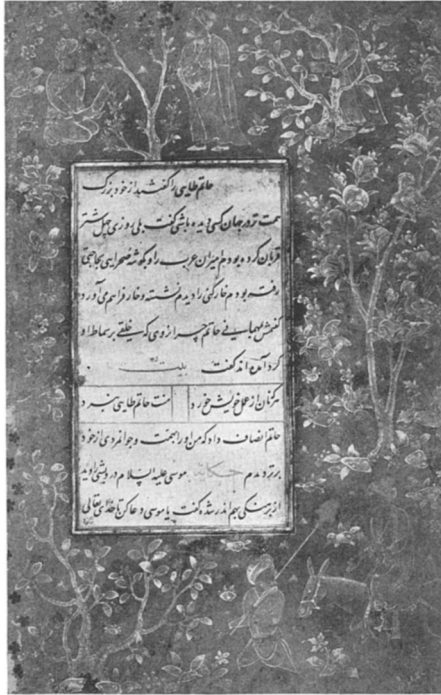 حاتم طایی را گفتند از خود بزرگ
همت تر در جهان کسی دیده باشی گفت بلی روزی چهل شتر
قربان کرده بودم امیران عرب را و بگوشه صحرایی بحاجتی
رفته بودم خارکنی را دیدم نشسته و خار فراهم می آورد
گفتمش بمهمانی حاتم چرا نروی که خلقی بر سماط او
گرد آمده اند گفت بیت
هر که نان از عمل خویش خورد منت حاتم طایی نبرد
حاتم انصاف داد که من او را بهمت و جوانمردی از خود
برتر دیدم حکایت موسی علیه السلام درویشی را دید
از برهنگی شده گفت یا موسی دعا کن تا خدای تعالی